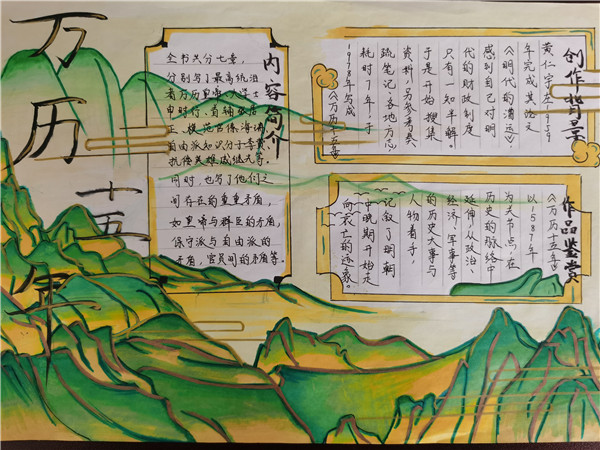 万历十五年
内容简介
全书共分七章，
分别写了最高统治
者万历皇帝，大学士
申时行，首辅张居
正，模范官僚海瑞，
自由派知识分子李贽，
抗倭英雄戚继光等。
同时，也写了他们之
间存在的重重矛盾，
如皇帝与群臣的矛盾，
保守派与自由派的
矛盾，官员间的矛盾等。
创作背景
黄仁宇在1959
年完成其论文
《明代的漕运》
感到自己对明
代的财政制度
只有一知半解。
于是开始搜集
资料，另参考奏
疏笔记、各地方志
耗时7年，于
1978年写成
《万历十五年》
作品鉴赏
《万历十五年》
以1587年
为关节点，在
历史的脉络中
延伸，从政治、
经济、军事等
的历史大事与
人物着手，
记叙了明朝
中晚期开始走
向衰亡的迹象